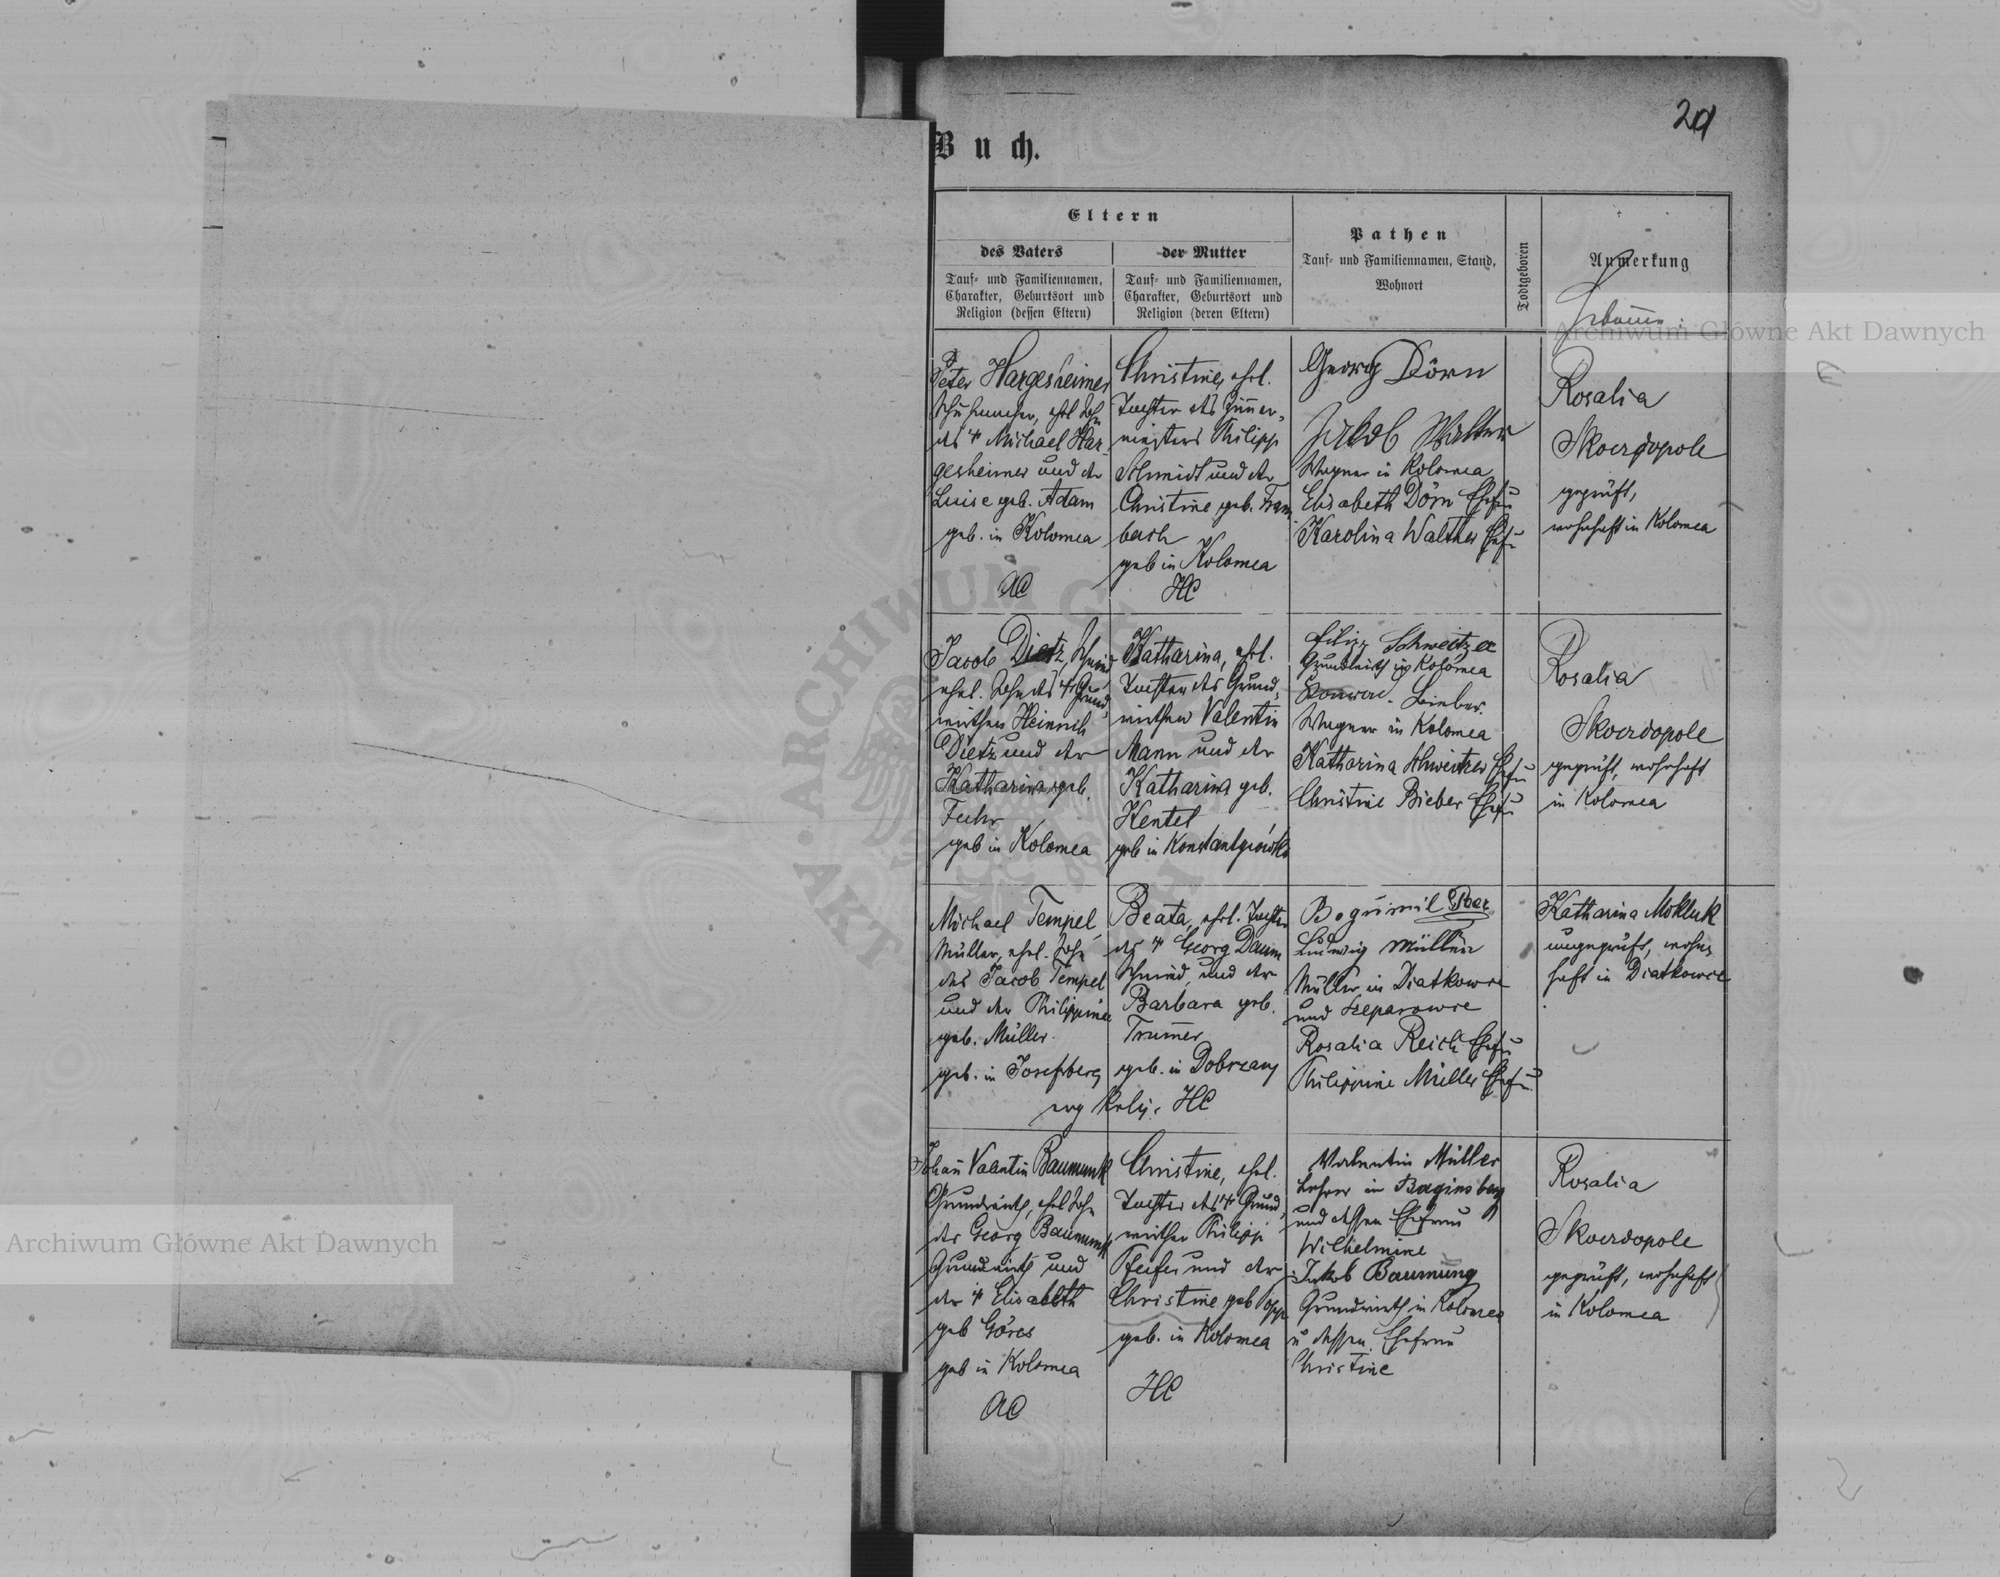 29
Buch.
Eltern
des Vaters
Tauf- und Familiennamen,
Charakter, Geburtsort und
Religion (dessen Eltern)
der Mutter
Tauf- und Familiennamen,
Charakter, Geburtsort und
Religion (deren Eltern)
Pathen
Tauf- und Familiennamen, Stand,
Wohnort
Todtgeboren
Anmerkung
Peter Hargesheimer
Schuhmacher, ehl Sohn
des † Michael Har-
gesheimer und der
Luise geb. Adam
geb. in Kolomea
AC
Christine, ehel.
Tochter des Zimmer-
meisters Philipp
Schmidt und der
Christine geb. Fram
bach
geb in Kolomea
HC
Georg Dörn
Jakob Walter
Wagner in Kolomea
Elisabeth Dörn Ehefr
Karolina Walther Ehefr
Rosalia
Skoerdopole
geprüft,
wohnhaft in Kolomea
Jacob Dietz, Schmied
ehel. Sohn des † Grund-
wirthen Heinrich
Dietz und der
Katharina geb.
Fuhr
geb in Kolomea
Katharina, ehel.
Tochter des Grund-
wirthen Valentin
Mann und der
Katharina geb.
Kentel
geb in Konstantynówka
Filipp Schweitzer
Grundwirth in Kolomea
Bieber.
Wagner in Kolomea
Katharina Schweitzer Ehefr
Christine Bieber Ehefr
Rosalia
Skoerdopole
geprüft, wohnhaft
in Kolomea
Michael Tempel
Müller, ehel. Sohn
des Jacob Tempel
und der Philippine
geb. Müller
geb. in Josefsberg
Beata, ehel. Tochter
des † Georg Daum
Schmied, und der
Barbara geb.
Trumer
geb. in Dobrzany
evg Relig. HC
Bogumil
Ludwig Müller
Müller in Diatkowce
und Szeparowce
Rosalia Reich Ehefr
Philippine Müller Ehefr
Katharina Mokluk
ungeprüft, wohn-
haft in Diatkowce
Johann Valentin Baumunk
Grundwirth, ehel Sohn
des Georg Baumunk
Grundwirth und
der † Elisabeth
geb Göres
geb in Kolomea
AC
Christine, ehel.
Tochter des † Grund-
wirthen Philipp
Pfeifer und der
Christine geb Opp
geb. in Kolomea
HC
Valentin Müller
Lehrer in Baginsberg
und dessen Ehefrau
Wilhelmine
Jakob Baumung
Grundwirth in Kolomea
u dessen Ehefrau
Christine
Rosalia
Skoerdopole
geprüft, wohnhaft
in Kolomea
Archiwum Główne Akt Dawnych
Archiwum Główne Akt Dawnych